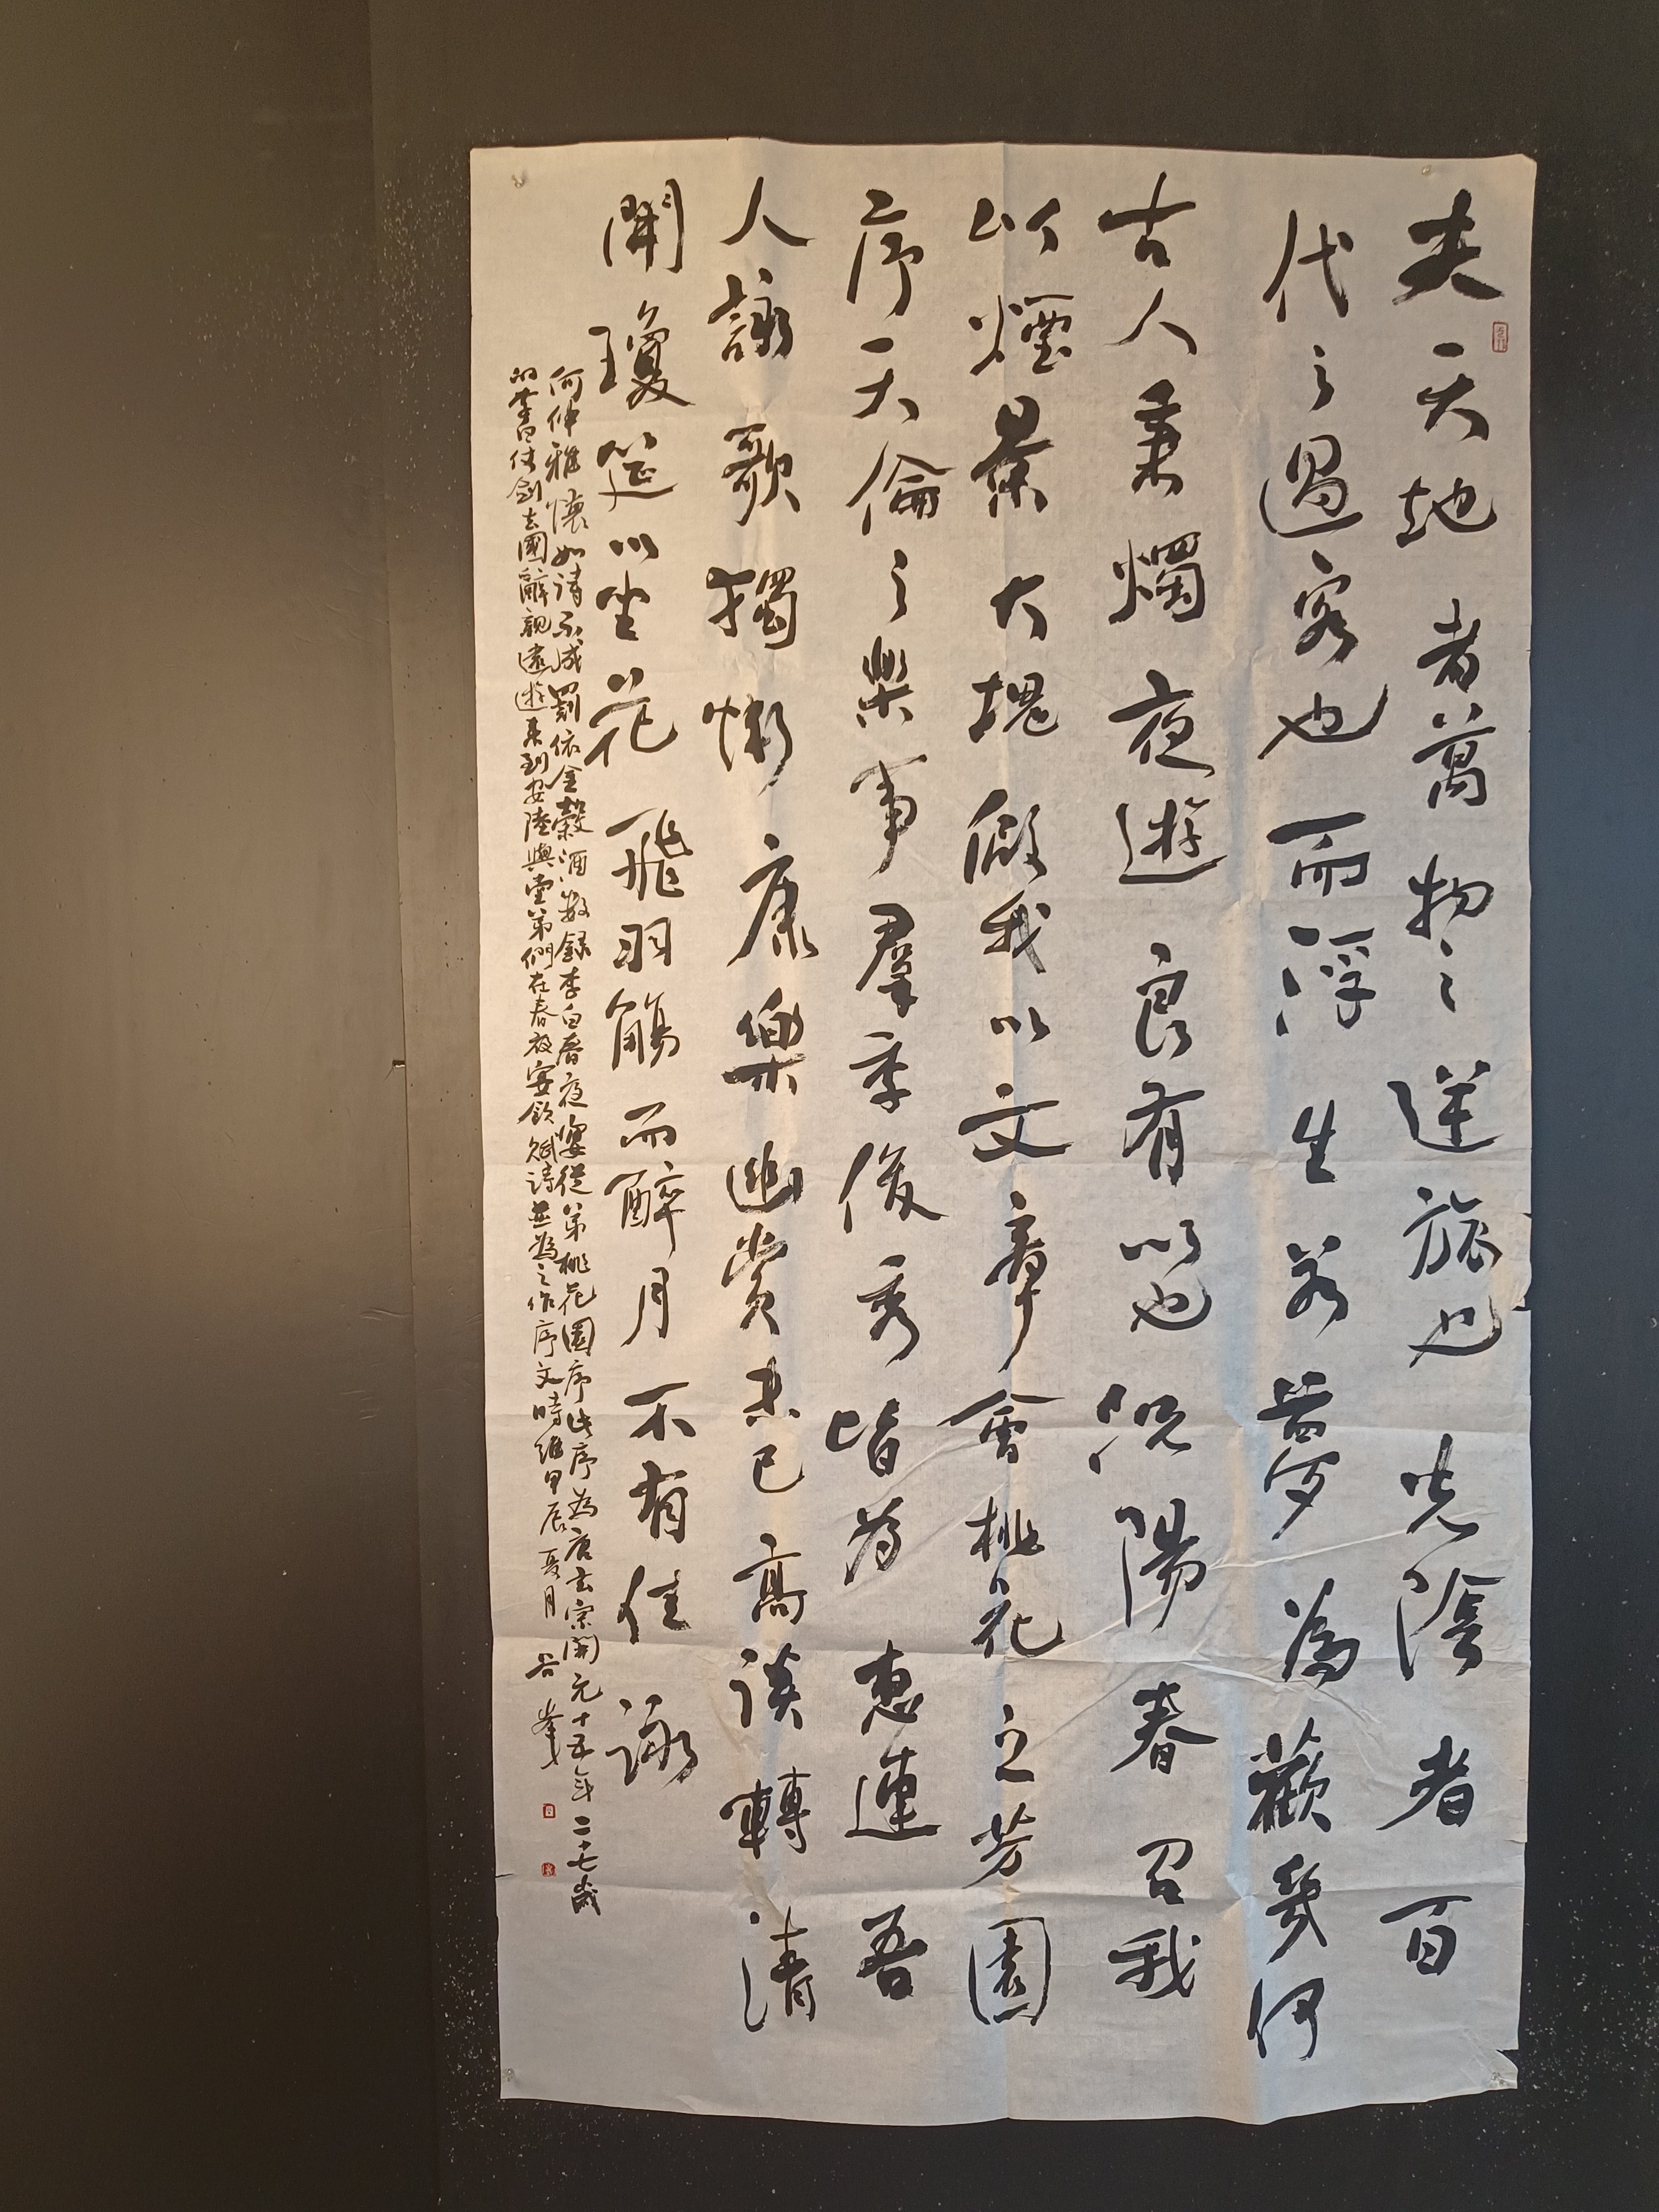 夫天地者萬物之逆旅也光陰者百
代之過客也而浮生若夢為歡幾何
古人秉燭夜遊良有以也況陽春召我
以煙景大塊假我以文章會桃花之芳園
序天倫之樂事羣季俊秀皆為惠連吾
人詠歌獨慚康樂幽賞未已高談轉清
開瓊筵以坐花飛羽觴而醉月不有佳詠
何伸雅懷如詩不成罰依金穀酒數錄李白春夜宴從弟桃花園序此序為唐玄宗開元十五年二十七歲
的李白仗劍去國辭親遠遊來到安陸與堂弟們在春夜宴飲賦詩並為之作序文時維甲辰夏月